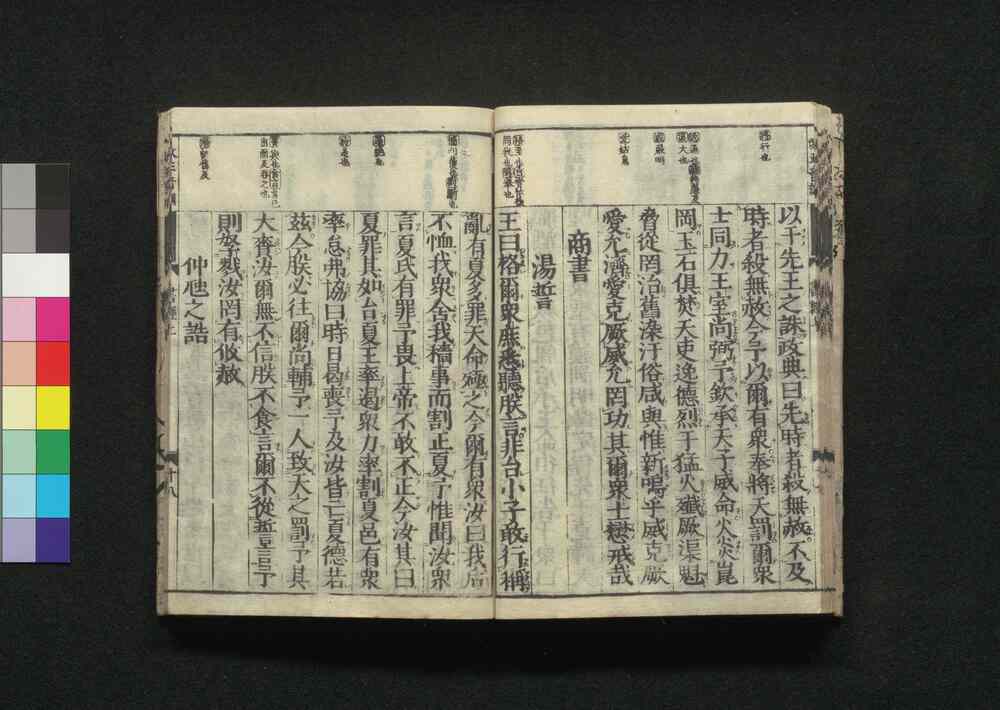 以干先王之誅政典曰先時者殺無赦不及
時者殺無赦今予以爾有衆奉將天罰爾衆
士同力王室尚弼予欽承天子威命火炎崑
岡玉石俱焚天吏逸德烈于猛火殲厥渠魁
脅從罔治舊染汙俗咸與惟新嗚乎威克厥
愛允濟愛克厥威允罔功其爾衆士懋戒哉
商書
湯誓
王曰格爾衆庶悉聽朕言非台小子敢行稱
亂有夏多罪天命殛之今爾有衆汝曰我后
不恤我衆舍我穡事而割正夏予惟聞汝衆
言夏氏有罪予畏上帝不敢不正今汝其曰
夏罪其如台夏王率遏衆力率割夏邑有衆
率怠弗協曰時日曷喪予及汝皆亡夏德若
茲今朕必往爾尚輔予一人致天之罰予其
大賚汝爾無不信朕不食言爾不從誓言予
則孥戮汝罔有攸赦
仲虺之誥